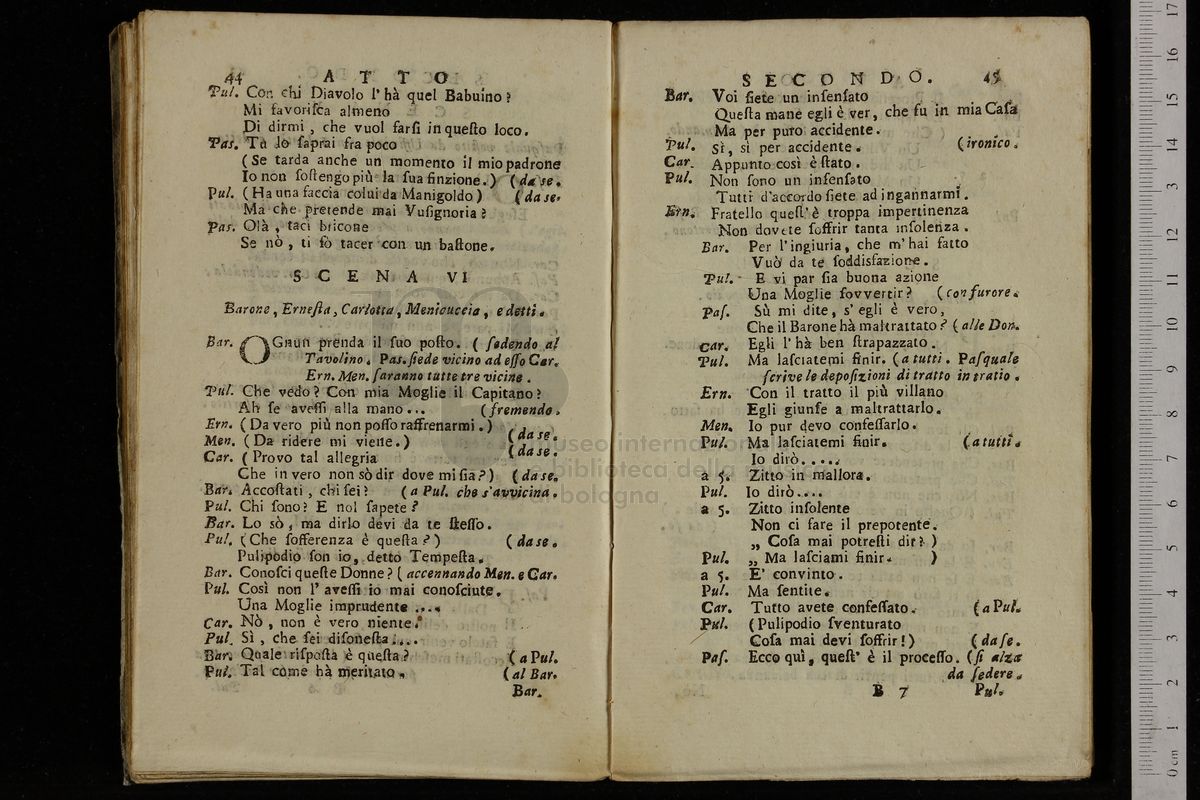 44 ATTO
Pul. Con chi Diavolo l' hà quel Babuino?
Mi favoriſca almeno
Di dirmi, che vuol farſi in queſto loco.
Pas. Tu lo ſaprai fra poco
(Se tarda anche un momento il mio padrone
Io non ſoſtengo più la ſua finzione.) (da se.
Pul. (Ha una faccia colui da Manigoldo) (da se.
Ma che pretende mai Vuſignoria?
Pas. Olà, taci bricone
Se nò, ti fò tacer con un baſtone.
SCENA VI
Barone, Erneſta, Carlotta, Menicuccia, e detti.
Bar. OGnun prenda il ſuo poſto. (ſedendo al
Tavolino. Pas. ſiede vicino ad eſſo Car.
Ern. Men. ſaranno tutte tre vicine.
Pul. Che vedo? Con mia Moglie il Capitano?
Ah ſe aveſſi alla mano... (fremendo.
Ern. (Da vero più non poſſo raffrenarmi.) (da se.
Men. (Da ridere mi viene.) (da se.
Car. (Provo tal allegria
Che in vero non sò dir dove mi ſia?) (da se.
Bar. Accoſtati, chi ſei? (a Pul. che s'avvicina.
Pul. Chi ſono? E nol ſapete?
Bar. Lo sò, ma dirlo devi da te ſteſſo.
Pul. (Che ſofferenza è queſta?) (da se.
Pulipodio ſon io, detto Tempeſta.
Bar. Conoſci queſte Donne? (accennando Men. e Car.
Pul. Così non l' aveſſi io mai conoſciute.
Una Moglie imprudente ....
Car. Nò, non è vero niente.
Pul. Sì, che ſei diſoneſta....
Bar. Quale riſpoſta è queſta? (a Pul.
Pul. Tal come hà meritato. (al Bar.
Bar.
SECONDO. 45
Bar. Voi ſiete un inſenſato
Queſta mane egli è ver, che fu in mia Caſa
Ma per puro accidente.
Pul. Sì, sì per accidente. (ironico.
Car. Appunto così è ſtato.
Pul. Non ſono un inſenſato
Tutti d'accordo ſiete ad ingannarmi.
Ern. Fratello queſt' è troppa impertinenza
Non dovete ſoffrir tanta inſolenza.
Bar. Per l'ingiuria, che m' hai fatto
Vuò da te ſoddisfazione.
Pul. E vi par ſia buona azione
Una Moglie ſovvertir? (con furore.
Paſ. Sù mi dite, s' egli è vero,
Che il Barone hà maltrattato? (alle Don.
Car. Egli l' hà ben ſtrapazzato.
Pul. Ma laſciatemi finir. (a tutti. Paſquale
ſcrive le depoſizioni di tratto in tratto.
Ern. Con il tratto il più villano
Egli giunſe a maltrattarlo.
Men. Io pur devo confeſſarlo.
Pul. Ma laſciatemi finir. (a tutti.
Io dirò.....
a 5. Zitto in mallora.
Pul. Io dirò....
a 5. Zitto inſolente
Non ci fare il prepotente.
„ Coſa mai potreſti dir?)
Pul. „ Ma laſciami finir. )
a 5. E' convinto.
Pul. Ma ſentite.
Car. Tutto avete confeſſato. (a Pul.
Pul. (Pulipodio ſventurato
Coſa mai devi ſoffrir!) (da ſe.
Paſ. Ecco quì, queſt' è il proceſſo. (ſi alza
da ſedere.
B 7 Pul.
museo internazionale
e biblioteca della
bologna